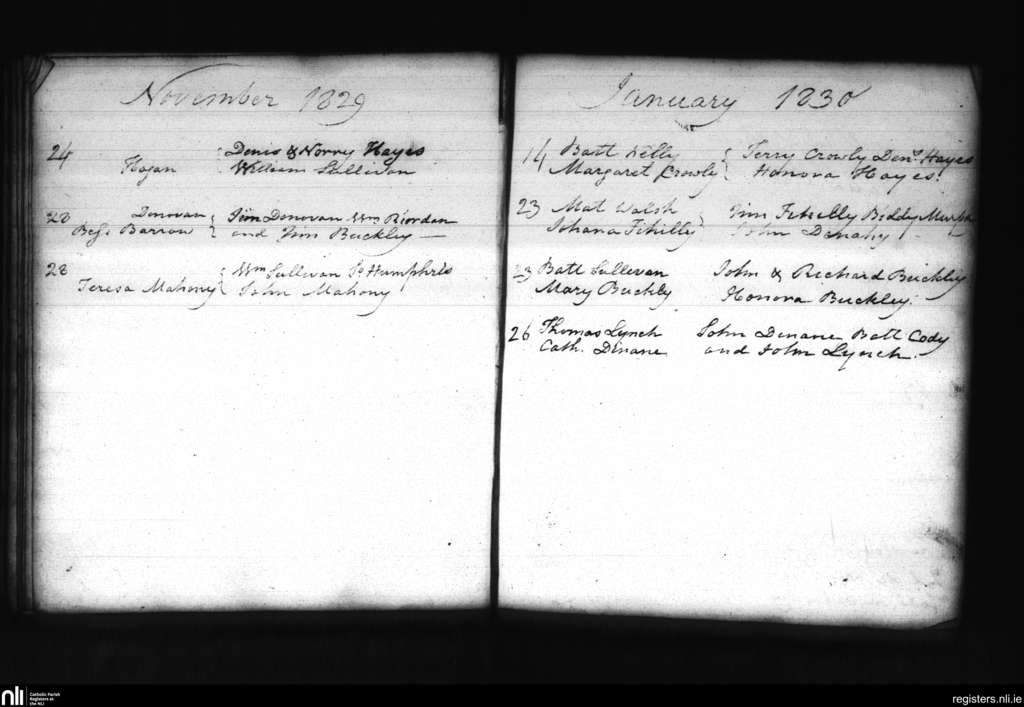 November 1829
24 Denis & Norry Hayes
Hogan William Sullivan
28 Donovan Tim Donovan Wm Riordan
Barrow and Tim Buckley
28 Wm Sullivan Humphris
Teresa Mahony John Mahony
January 1830
14 Batt Kelly Terry Crowly Denis Hayes
Margaret Crowly Honora Hayes.
23 Mat Walsh Tim Fehilly Biddy
Johana Fehilly John Denahy
23 Batt Sullivan John & Richard Buckley
Mary Buckly Honora Buckley.
26 Thomas Lynch John Dinane Batt Cody
Cath. Dinane and John Lynch.
nli
Catholic Parish
Registers at
the NLI
registers.nli.ie